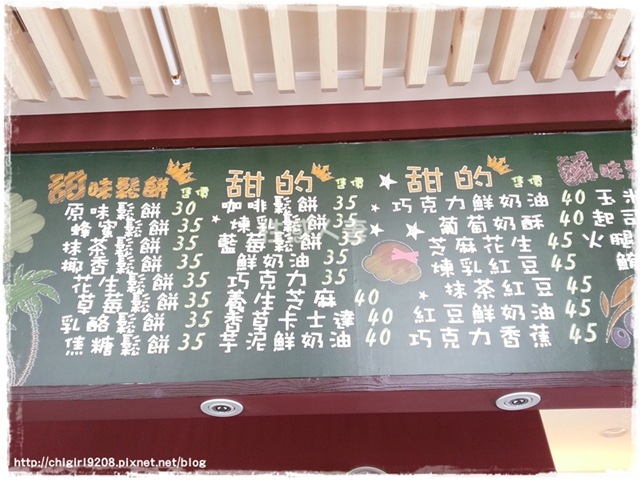 甜味鬆餅 售價
原味鬆餅 30
蜂蜜鬆餅 35
抹茶鬆餅 35
椰香鬆餅 35
花生鬆餅 35
草莓鬆餅 35
乳酪鬆餅 35
焦糖鬆餅 35
甜的 售價
咖啡鬆餅 35
煉乳鬆餅 35
藍莓鬆餅 35
鮮奶油 35
巧克力 35
養生芝麻 40
香草卡士達 40
芋泥鮮奶油 40
甜的 售價
巧克力鮮奶油 40
葡萄奶酥 40
芝麻花生 40
煉乳紅豆 45
抹茶紅豆 45
紅豆鮮奶油 45
巧克力香蕉 45
鹹味
玉米
起
火腿
鮪
http://chigirl9208.pixnet.net/blog